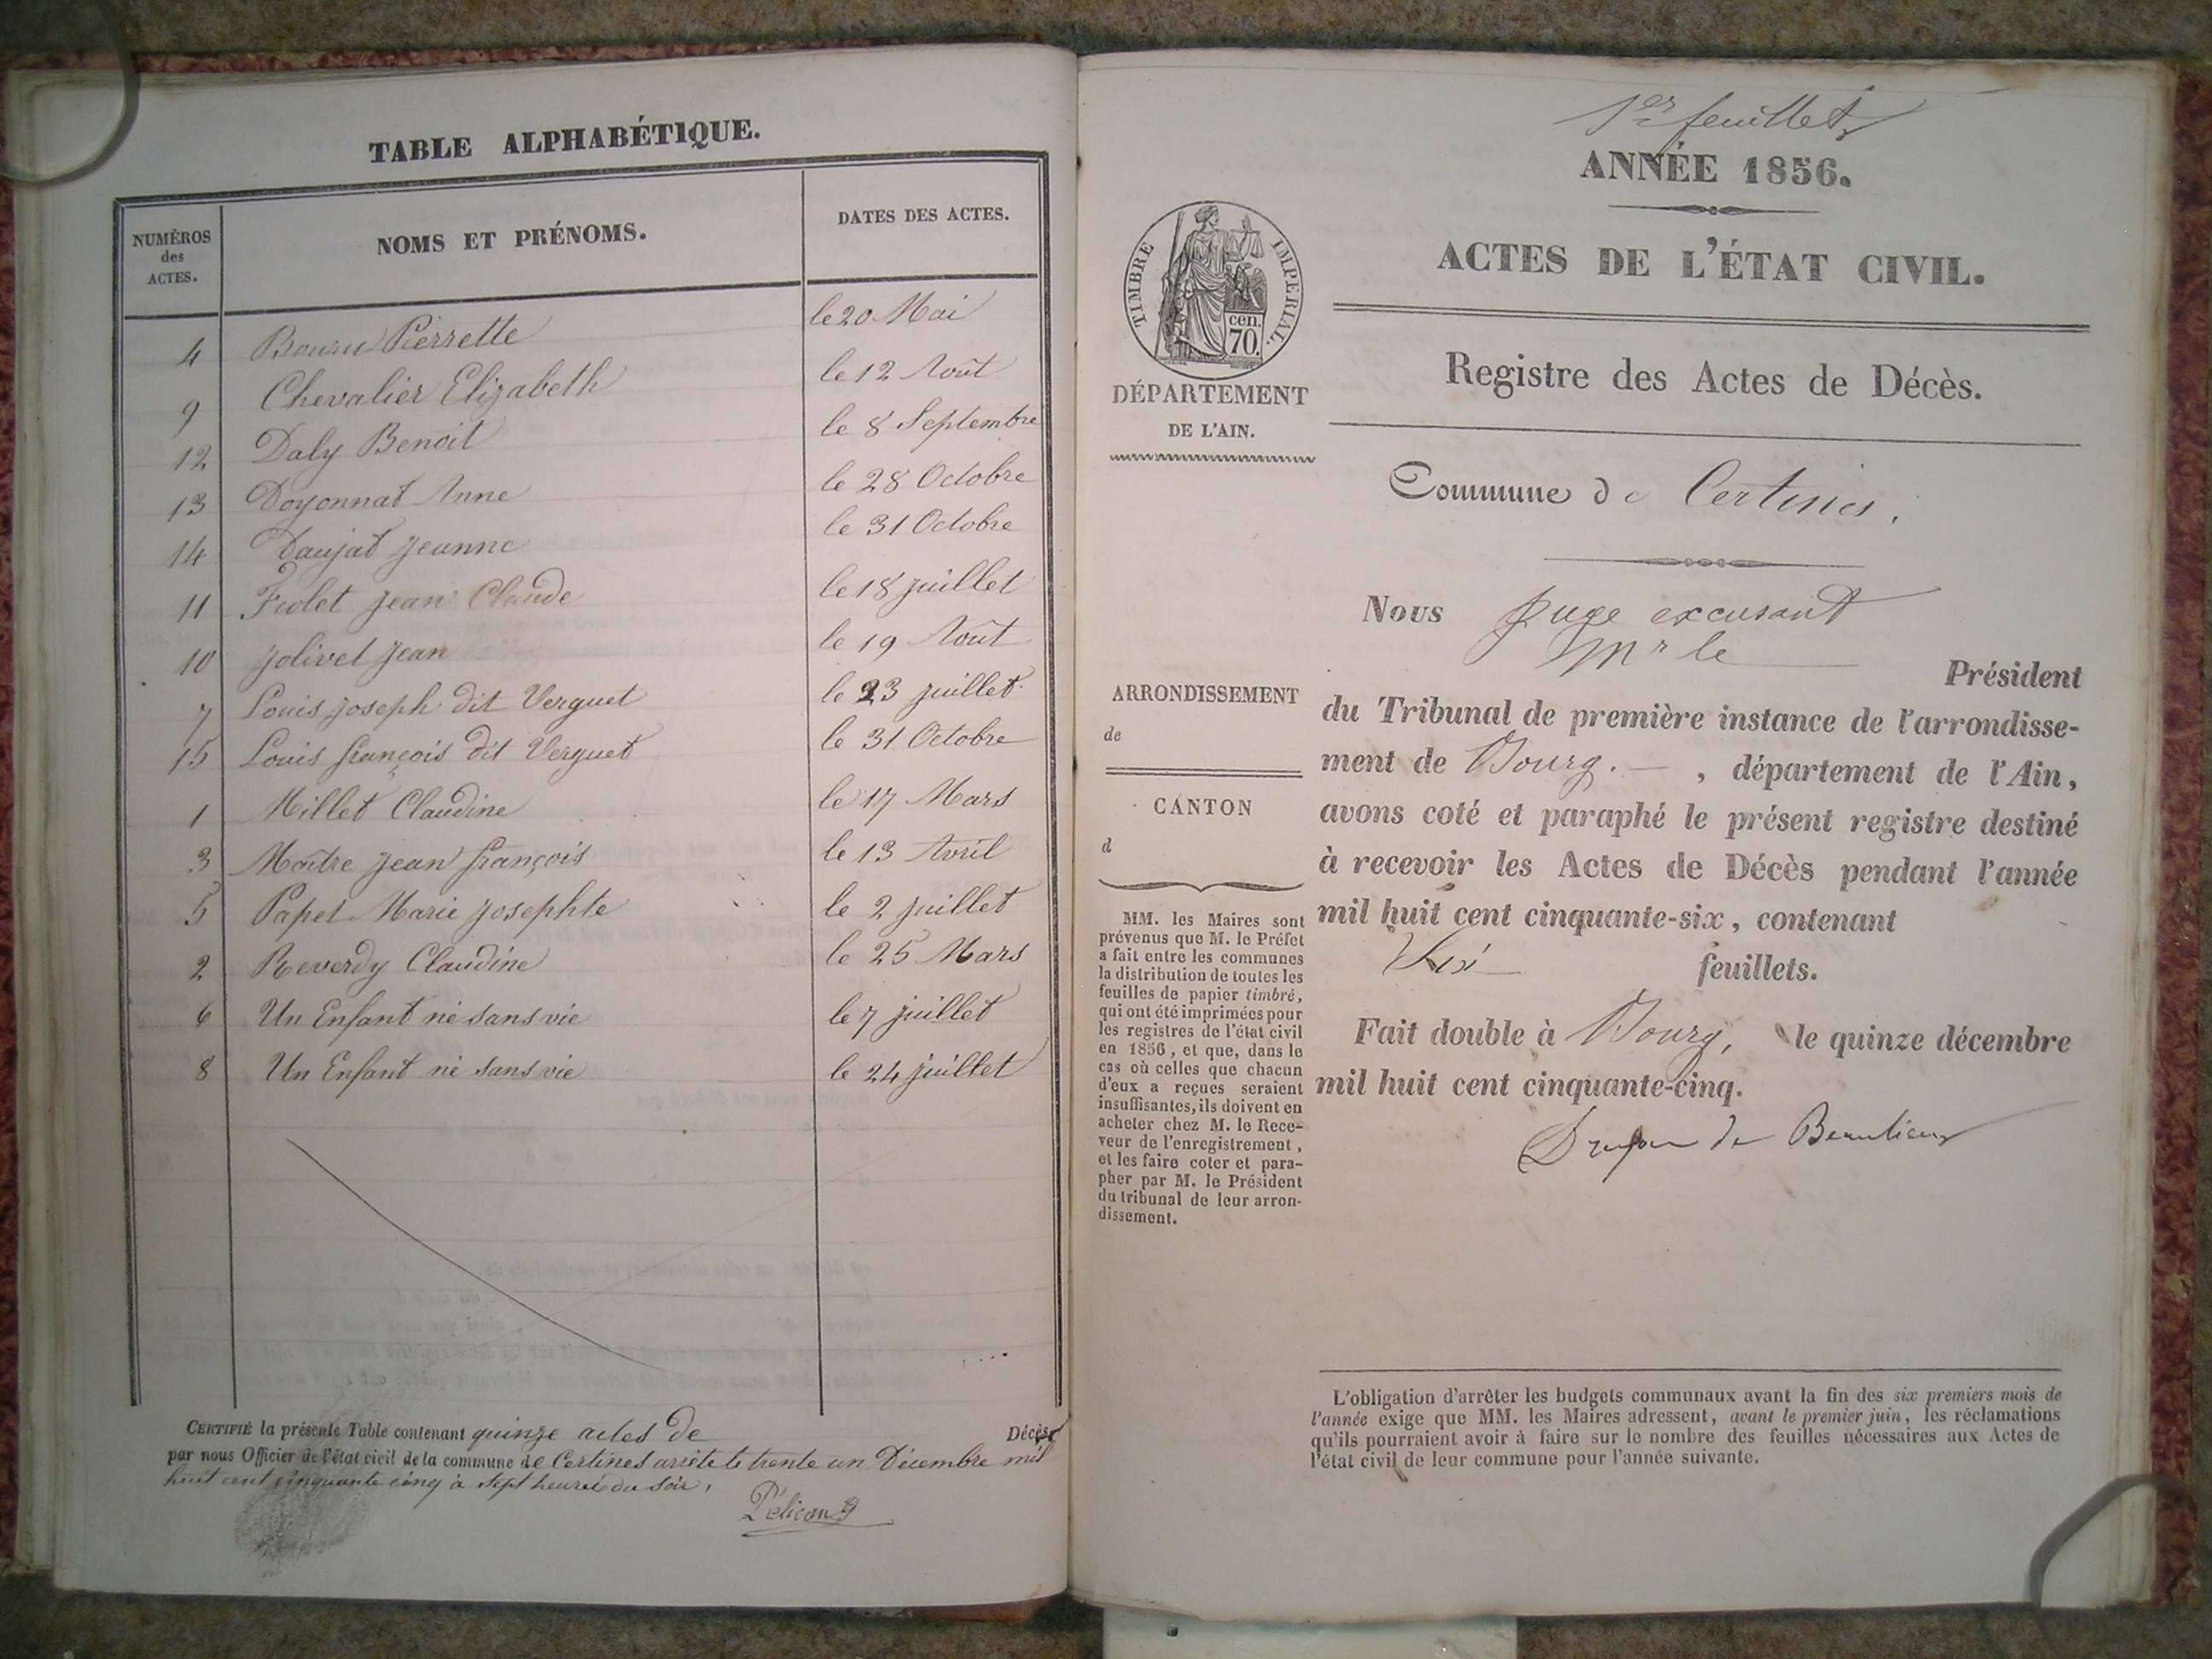 TABLE ALPHABÉTIQUE.
NUMÈROS des ACTES. NOMS ET PRÉNOMS. DATES DES ACTES.
4 Bouru Pierrette le 20 Mai
9 Chevalier Elizabeth le 12 Août
12 Daly Benoit le 8 Septembre
13 Doyonnat Anne le 28 Octobre
14 Daujat Jeanne le 31 Octobre
11 Jean Claude le 18 juillet
10 Jolivet Jean le 19 Août
7 Louis Joseph dit Verguet le 23 juillet
15 Louis françois dit Verguet le 31 Octobre
1 Millet Claudine le 17 Mars
3 Maître Jean françois le 13 Avril
5 Papet Marie Josephte le 2 juillet
2 Reverdy Claudine le 25 Mars
6 Un Enfant né sans vie le 7 juillet
8 Un Enfant né sans vie le 24 juillet
CERTIFIÉ la présente Table contenant quinze actes de Décès
par nous Officier de l'état civil de la commune de Certines arrêté le trente un Décembre mil
huit cent cinquante cinq à sept heures du soir.
Pélican
1er feuillet
ANNÉE 1856.
ACTES DE L'ÉTAT CIVIL.
TIMBRE IMPERIAL.
cen.
70.
DÉPARTEMENT
DE L'AIN.
Registre des Actes de Décès.
Commune de Certines.
Nous Juge excusant
Mr le
Président
du Tribunal de première instance de l'arrondisse-
ment de Bourg. — , département de l'Ain,
avons coté et paraphé le présent registre destiné
à recevoir les Actes de Décès pendant l'année
mil huit cent cinquante-six, contenant
Six feuillets.
Fait double à Bourg, le quinze décembre
mil huit cent cinquante-cinq.
de Beaulieu
ARRONDISSEMENT
de
CANTON
d
MM. les Maires sont
prévenus que M. le Préfet
a fait entre les communes
la distribution de toutes les
feuilles de papier timbré,
qui ont été imprimées pour
les registres de l'état civil
en 1856, et que, dans le
cas où celles que chacun
d'eux a reçues seraient
insuffisantes, ils doivent en
acheter chez M. le Rece-
veur de l'enregistrement,
et les faire coter et para-
pher par M. le Président
du tribunal de leur arron-
dissement.
L'obligation d'arrêter les budgets communaux avant la fin des six premiers mois de
l'année exige que MM. les Maires adressent, avant le premier juin, les réclamations
qu'ils pourraient avoir à faire sur le nombre des feuilles nécessaires aux Actes de
l'état civil de leur commune pour l'année suivante.